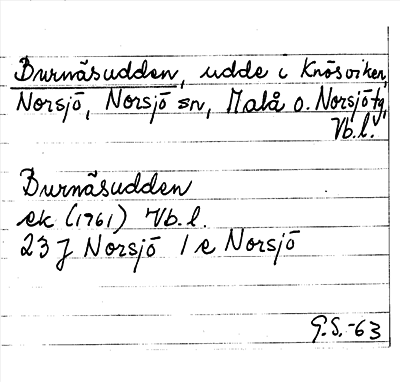 Burnäsudden, udde i Knösviken,
Norsjö, Norsjö sn, Malå o. Norsjö tg,
Vb.l.
Burnäsudden
ek (1961) Vb.l.
23 J Norsjö 1 e Norsjö
G.S.-63